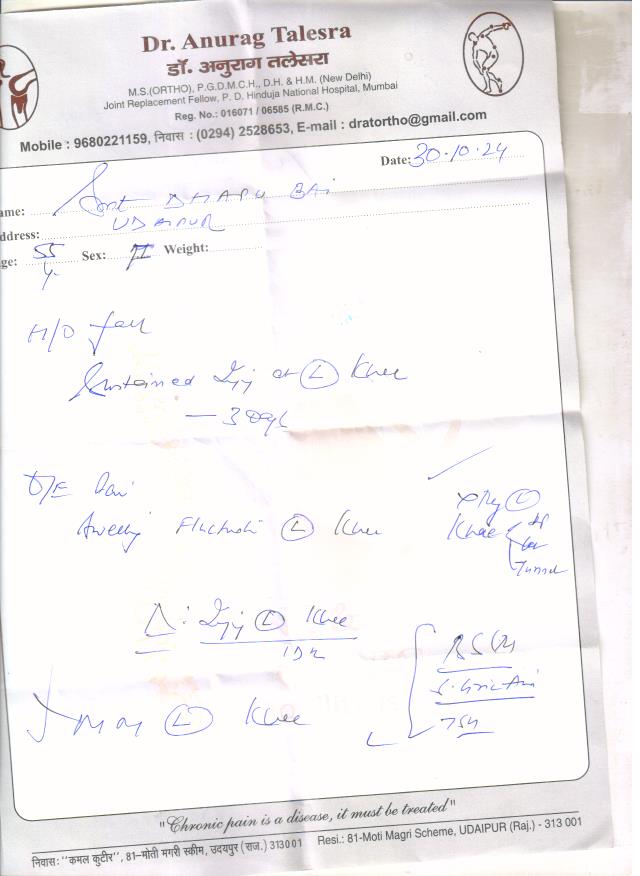 Dr. Anurag Talesra
डॉ. अनुराग तलेसरा
M.S.(ORTHO), P.G.D.M.C.H., D.H. & H.M. (New Delhi)
Joint Replacement Fellow, P. D. Hinduja National Hospital, Mumbai
Reg. No.: 016071 / 06585 (R.M.C.)
Mobile : 9680221159, निवास : (0294) 2528653, E-mail : dratortho@gmail.com
Date: 30.10.24
ame: Smt DHAPU BAi
ddress: UDAIPUR
ge: 55 y. Sex: F Weight:
H/O fall
Sustained Inj at L Knee
— 3 days
O/E Pain
Swelling L Knee
xRay L
Knee AP
Lat
Tunnel
Δ: Inj L Knee
IDK
MRI L Knee
"Chronic pain is a disease, it must be treated"
निवास: "कमल कुटीर", 81-मोती मगरी स्कीम, उदयपुर (राज.) 313001 Resi.: 81-Moti Magri Scheme, UDAIPUR (Raj.) - 313 001